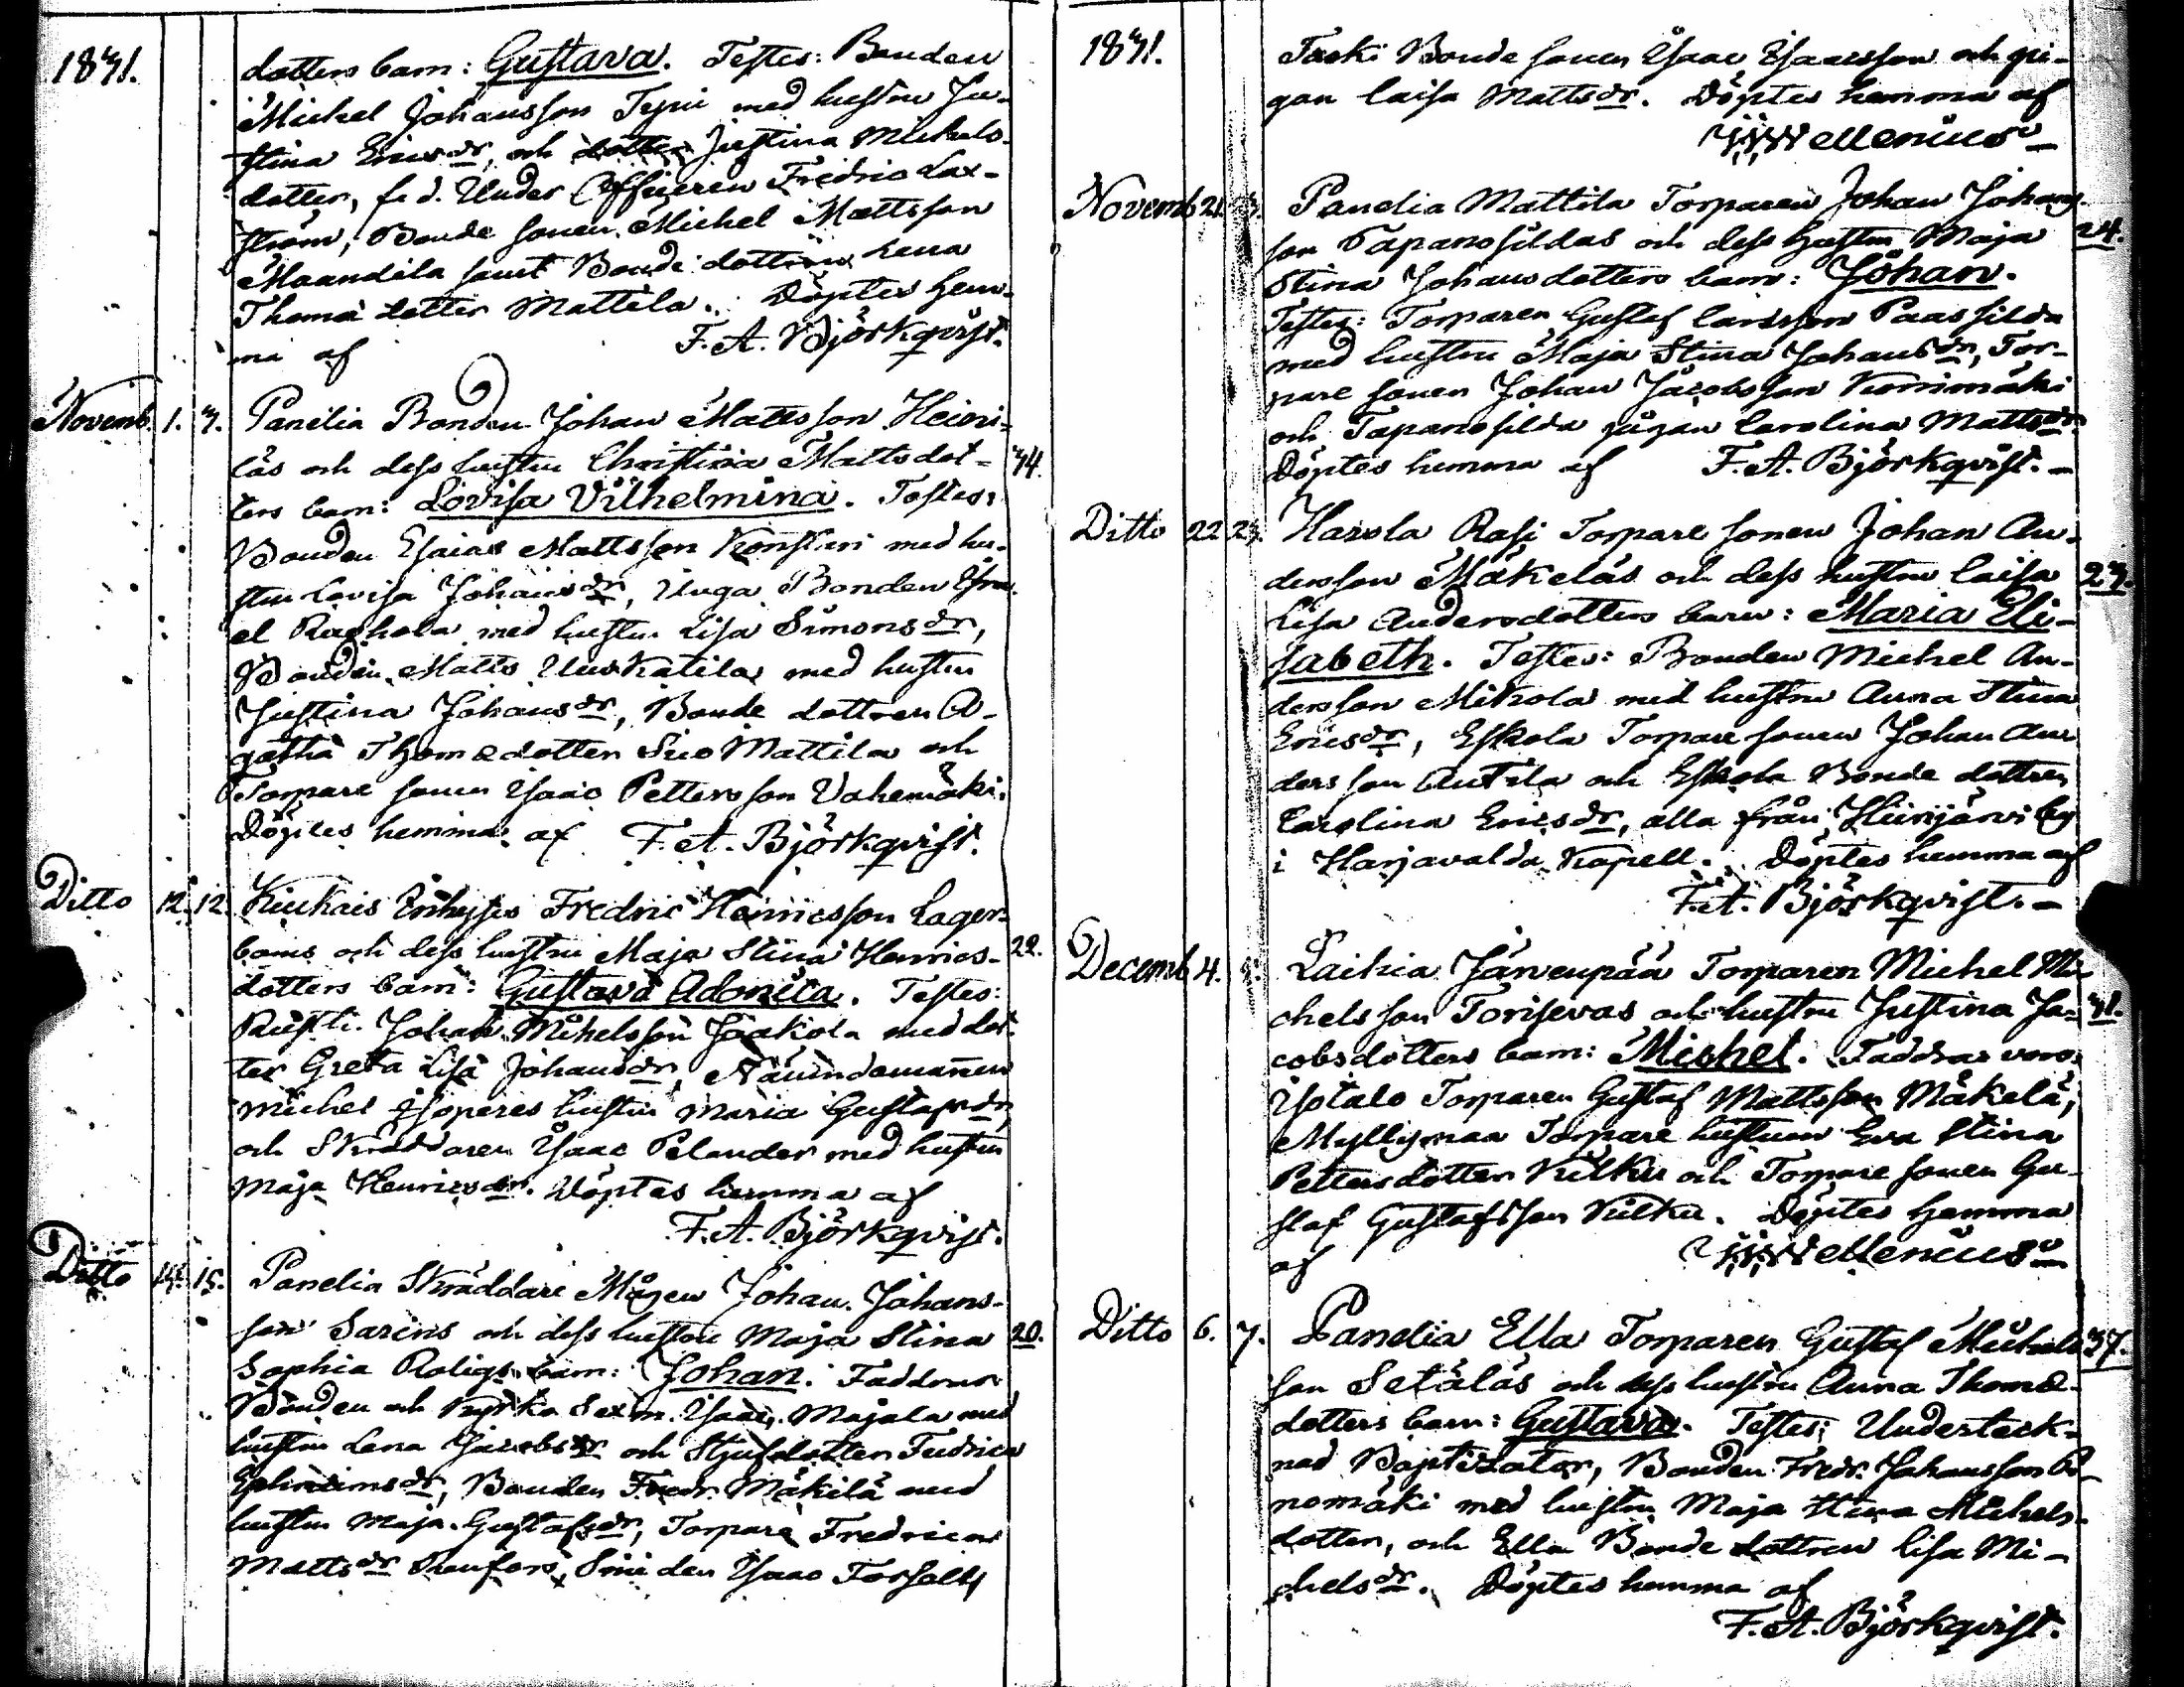 1871.
dotters barn: Gustava. Testes: Bonden
Michel Johansson Tyni med hustru Ju-
stina Ericsdr, och dotter Justina Michels-
dotter, f. d. Under Officeren Fredric Lax-
ström, Bonde sonen Michel Mattsson
Maandila samt Bonde dottren Lena
Thomædotter Mattila. Döptes hem-
ma af F. A. Björkqvist.
Novemb. 1. 7. Panelia Bonden Johan Mattsson Heini-
läs och dess hustru Christina Mattsdot- 44.
ters barn: Lovisa Vilhelmina. Testes:
Bonden Esaias Mattsson Konstari med hu-
stru Lovisa Johansdr, Unga Bonden Isra-
el Raghola med hustru Lisa Simonsdr,
Bonden Matts Uuskatila med hustru
Justina Johansdr, Bonde dottren A-
gatha Thomædotter Sico Mattila och
Torpare sonen Isaac Pettersson Vahemäki.
Döptes hemma af F. A. Björkqvist.
Ditto 12. 12. Kiukais Inhyses Fredric Henricsson Lager-
boms och dess hustru Maja Stina Henrics- 22.
dotters barn: Gustava Adonica. Testes:
Rusth. Johan Michelsson Jaakola med dot-
ter Greta Lisa Johansdr, Nämndemannen
Michel Isoperes hustru Maria Gustafsdr,
och Skräddaren Isaac Pelander med hustru
Maja Henricsdr. Döptes hemma af
F. A. Björkqvist.
Ditto 15. Panelia Skräddare Mågen Johan Johans-
son Sarens och dess hustru Maja Stina 20.
Sophia Roligs barn: Johan. Faddrar
Bonden och Kyrko Sexm. Isaac Majala med
hustru Lena Jacobsdr och Stjufdotter Fredrica
Ephraimsdr, Bonden Fredr. Mäkilä med
hustru Maja Gustafsdr, Torpare Fredrica
Mattsdr Smeden Isaac Forsholts
1871.
Taski Bonde sonen Isaac Isaacsson och pi-
gan Caisa Mattsdr. Döptes hemma af
Wellenius
Novemb 21. Panelia Mattila Torparen Johan Johans-
son Tapanosildas och dess hustru Maja 24.
Stina Johansdotters barn: Johan.
Testes: Torparen Gustaf Carlsson Paassilda
med hustru Maja Stina Johansdr, Tor-
pare sonen Johan Jacobsson Korrimäki
och Tapanosilda pigan Carolina Mattsdr.
Döptes hemma af F. A. Björkqvist.
Ditto 22 Harola Rasi Torpare sonen Johan An-
dersson Mäkeläs och dess hustru Caisa 27.
Lisa Andersdotters barn: Maria Eli-
sabeth. Testes: Bonden Michel An-
dersson Mikola med hustru Anna Stina
Ericsdr, Eskola Torpare sonen Johan An-
dersson Antila och Eskola Bonde dottren
Carolina Ericsdr, alla från Hiirijärvi by
i Harjavalda Kapell. Döptes hemma af
F. A. Björkqvist.
Decemb 4. Laihia Järvenpää Torparen Michel Mi-
chelsson Torisevas och hustru Justina Ja- 41.
cobsdotters barn: Michel. Faddrar voro:
Isotalo Torparen Gustaf Mattsson Mäkelä,
Myllymaa Torpare hustrun Eva Stina
Pettersdotter Kulku och Torpare sonen Gu-
staf Gustafsson Kulku. Döptes hemma
af Wellenius
Ditto 6. 7. Panelia Ella Torparen Gustaf Michels- 37.
son Setäläs och dess hustru Anna Thomæ-
dotters barn: Gustava. Testes: Underteck-
nad Baptizator, Bonden Fredr. Johansson Po-
nomäki med hustru Maja Stina Michels-
dotter, och Ella Bonde dottren Lisa Mi-
chelsdr. Döptes hemma af
F. A. Björkqvist.